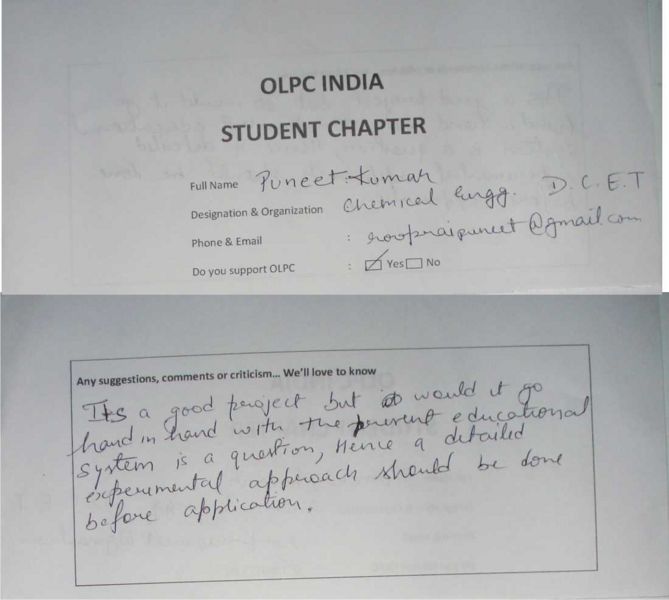 OLPC INDIA
STUDENT CHAPTER
Full Name Puneet Kumar
Designation & Organization Chemical Engg. D.C.E.T
Phone & Email : roopraipuneet@gmail.com
Do you support OLPC : Yes No
Any suggestions, comments or criticism... We'll love to know
Its a good project but would it go
hand in hand with the present educational
system is a question, Hence a detailed
experimental approach should be done
before application.